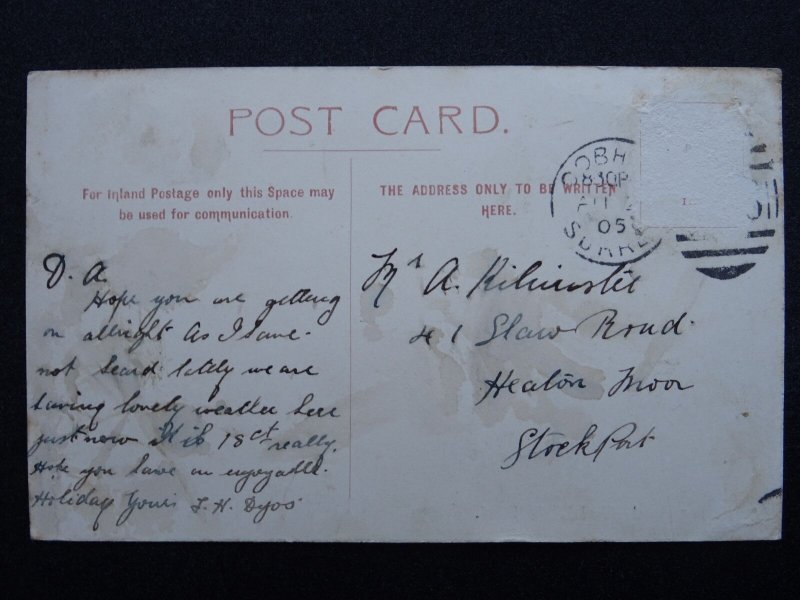 POST CARD.
For Inland Postage only this Space may
be used for communication.
THE ADDRESS ONLY TO BE WRITTEN
HERE.
COBH
830P
AU
05
SURRE
D. A.
Hope you are getting
on allright As I have
not heard lately we are
having lovely weather here
just now it is 18ct really.
Hope you have an enjoyable
Holiday Yours
Mr A.
41 Road
Heaton Moor
Stockport